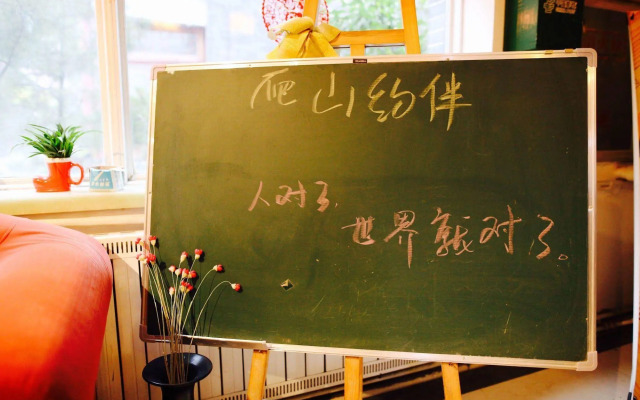 爬山约伴
人对了,
世界就对了。